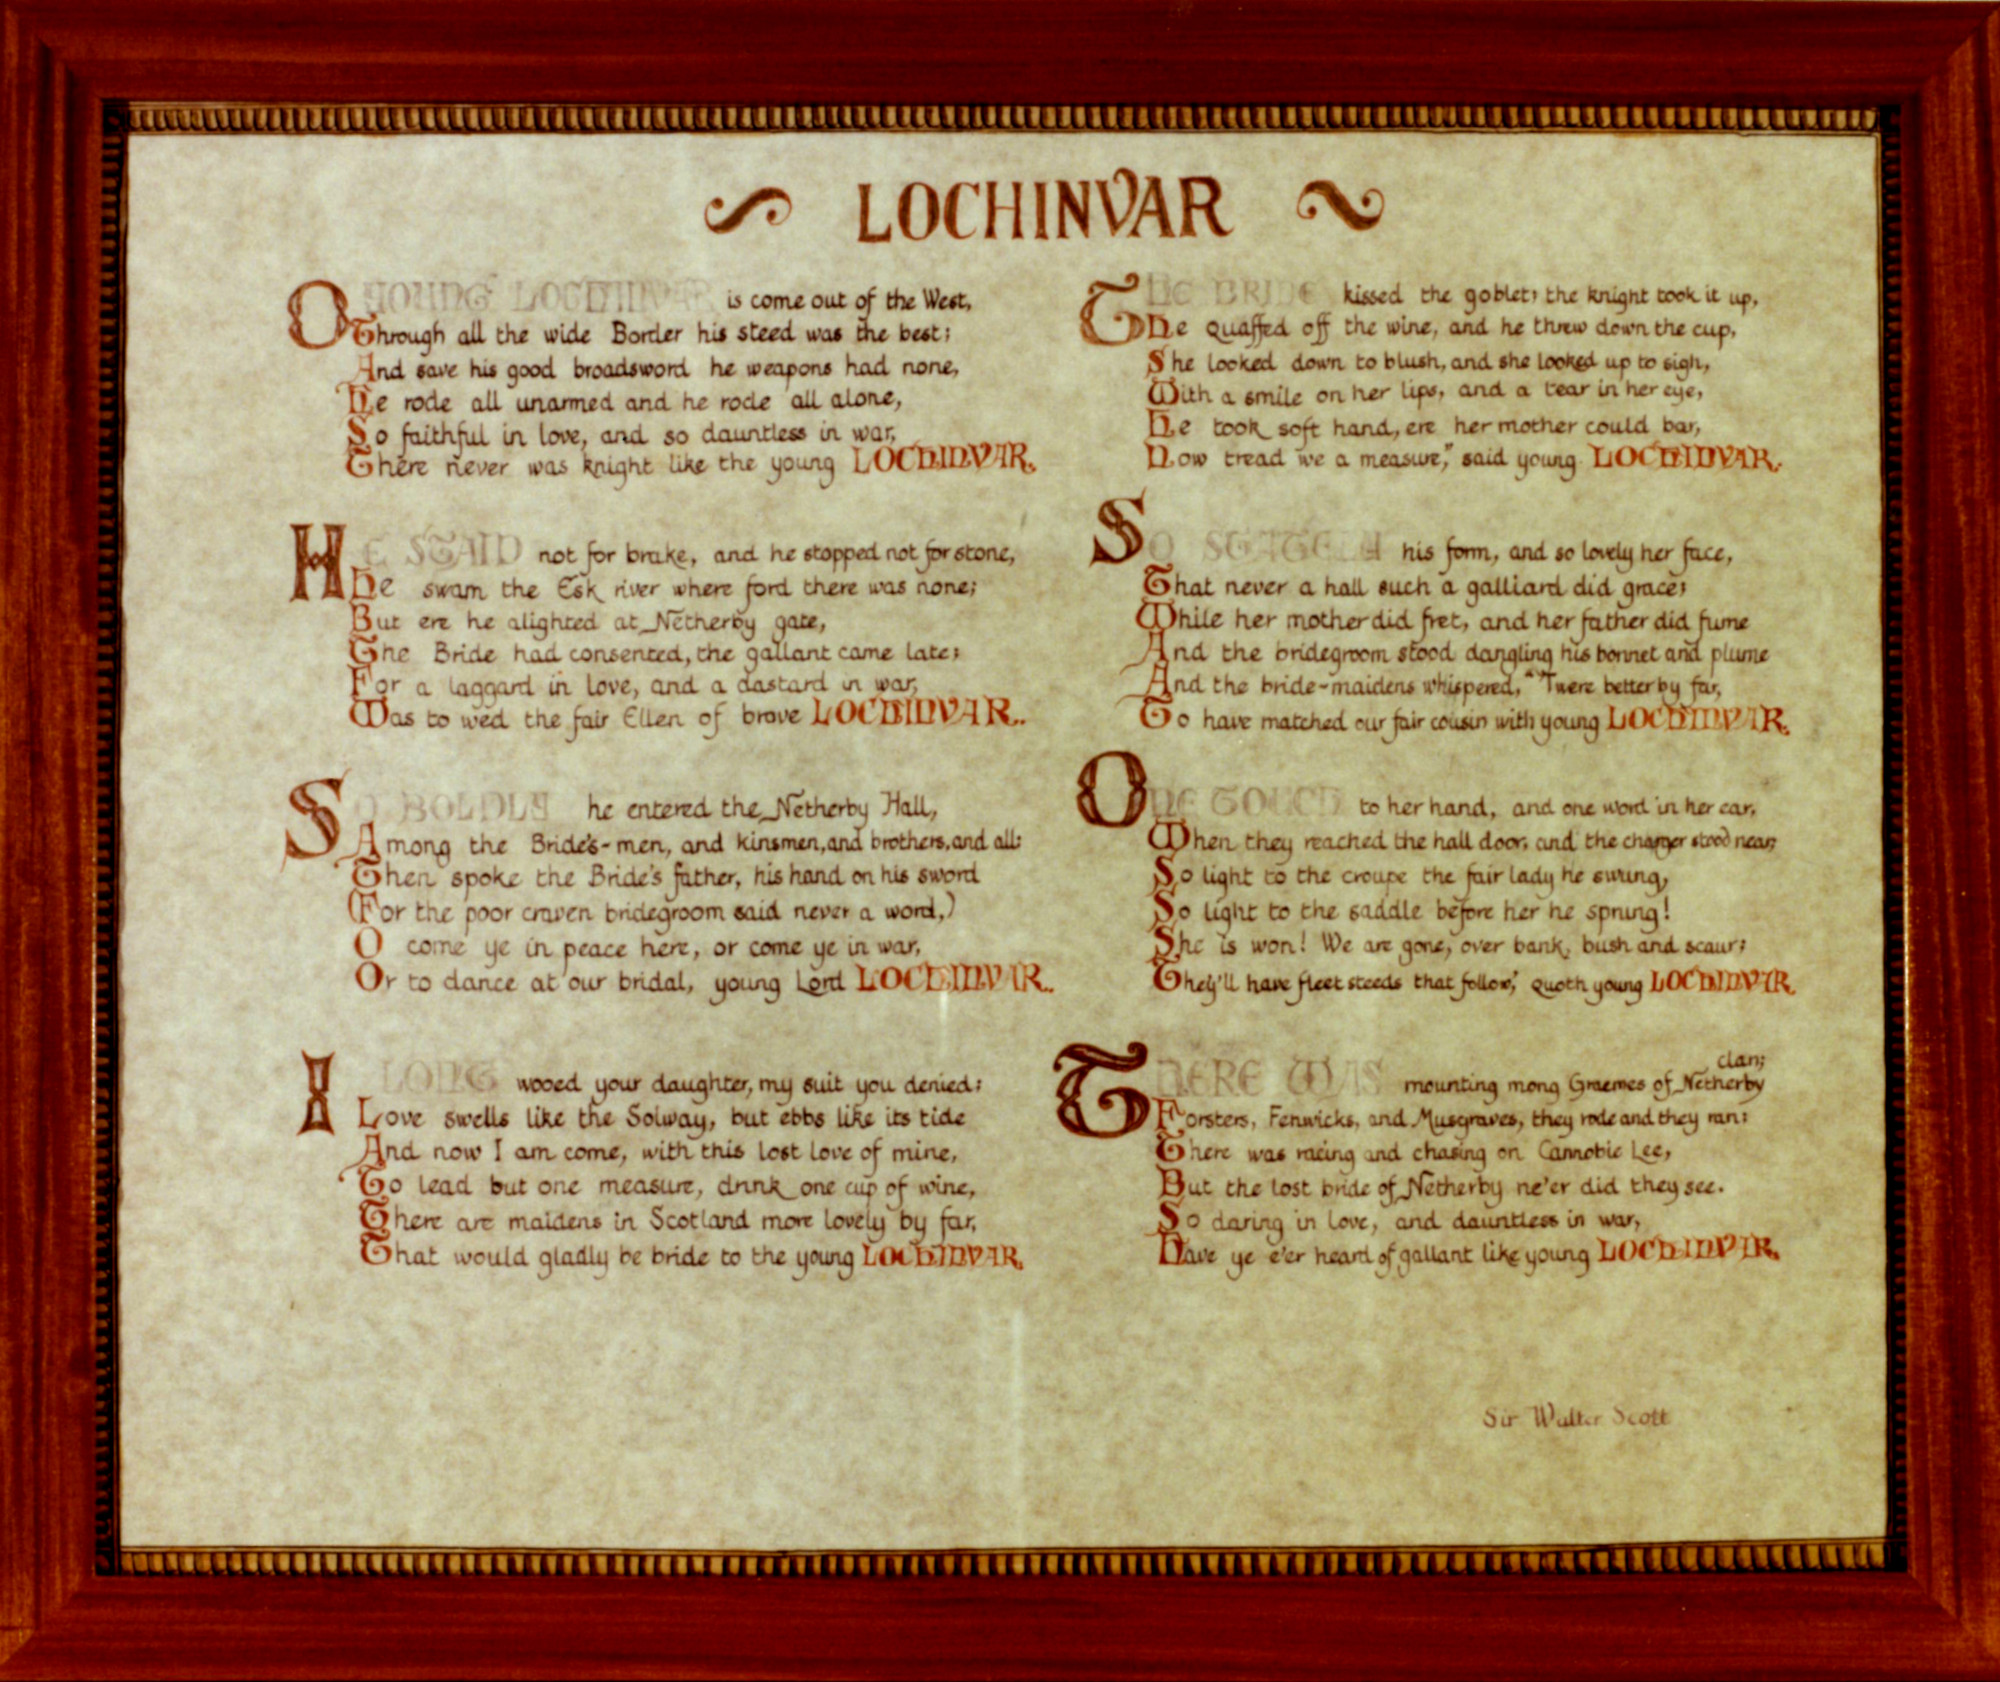 LOCHINVAR
O YOUNG LOCHINVAR is come out of the West,
Through all the wide Border his steed was the best;
And save his good broadsword he weapons had none,
He rode all unarmed and he rode all alone,
So faithful in love, and so dauntless in war,
There never was knight like the young LOCHINVAR.
HE STAID not for brake, and he stopped not for stone,
He swam the Esk river where ford there was none;
But ere he alighted at Netherby gate,
The Bride had consented, the gallant came late;
For a laggard in love, and a dastard in war,
Was to wed the fair Ellen of brave LOCHINVAR..
SO BOLDLY he entered the Netherby Hall,
Among the Bride's-men, and kinsmen, and brothers, and all;
Then spoke the Bride's father, his hand on his sword
(For the poor craven bridegroom said never a word,)
O come ye in peace here, or come ye in war,
Or to dance at our bridal, young Lord LOCHINVAR..
I LONG wooed your daughter, my suit you denied;
Love swells like the Solway, but ebbs like its tide
And now I am come, with this lost love of mine,
To lead but one measure, drink one cup of wine,
There are maidens in Scotland more lovely by far,
That would gladly be bride to the young LOCHINVAR.
THE BRIDE kissed the goblet; the knight took it up,
He quaffed off the wine, and he threw down the cup,
She looked down to blush, and she looked up to sigh,
With a smile on her lips, and a tear in her eye,
He took soft hand, ere her mother could bar,
Now tread we a measure," said young LOCHINVAR.
SO STATELY his form, and so lovely her face,
That never a hall such a galliard did grace;
While her mother did fret, and her father did fume
And the bridegroom stood dangling his bonnet and plume
And the bride-maidens whispered, "Twere better by far,
To have matched our fair cousin with young LOCHINVAR.
ONE TOUCH to her hand, and one word in her ear,
When they reached the hall door, and the charger stood near;
So light to the croupe the fair lady he swung,
So light to the saddle before her he sprung!
She is won! We are gone, over bank, bush and scaur;
They'll have fleet steeds that follow," quoth young LOCHINVAR.
THERE WAS mounting mong Graemes of Netherby clan;
Forsters, Fenwicks, and Musgraves, they rode and they ran;
There was racing and chasing on Cannobie Lee,
But the lost bride of Netherby ne'er did they see.
So daring in love, and dauntless in war,
Have ye e'er heard of gallant like young LOCHINVAR.
Sir Walter Scott